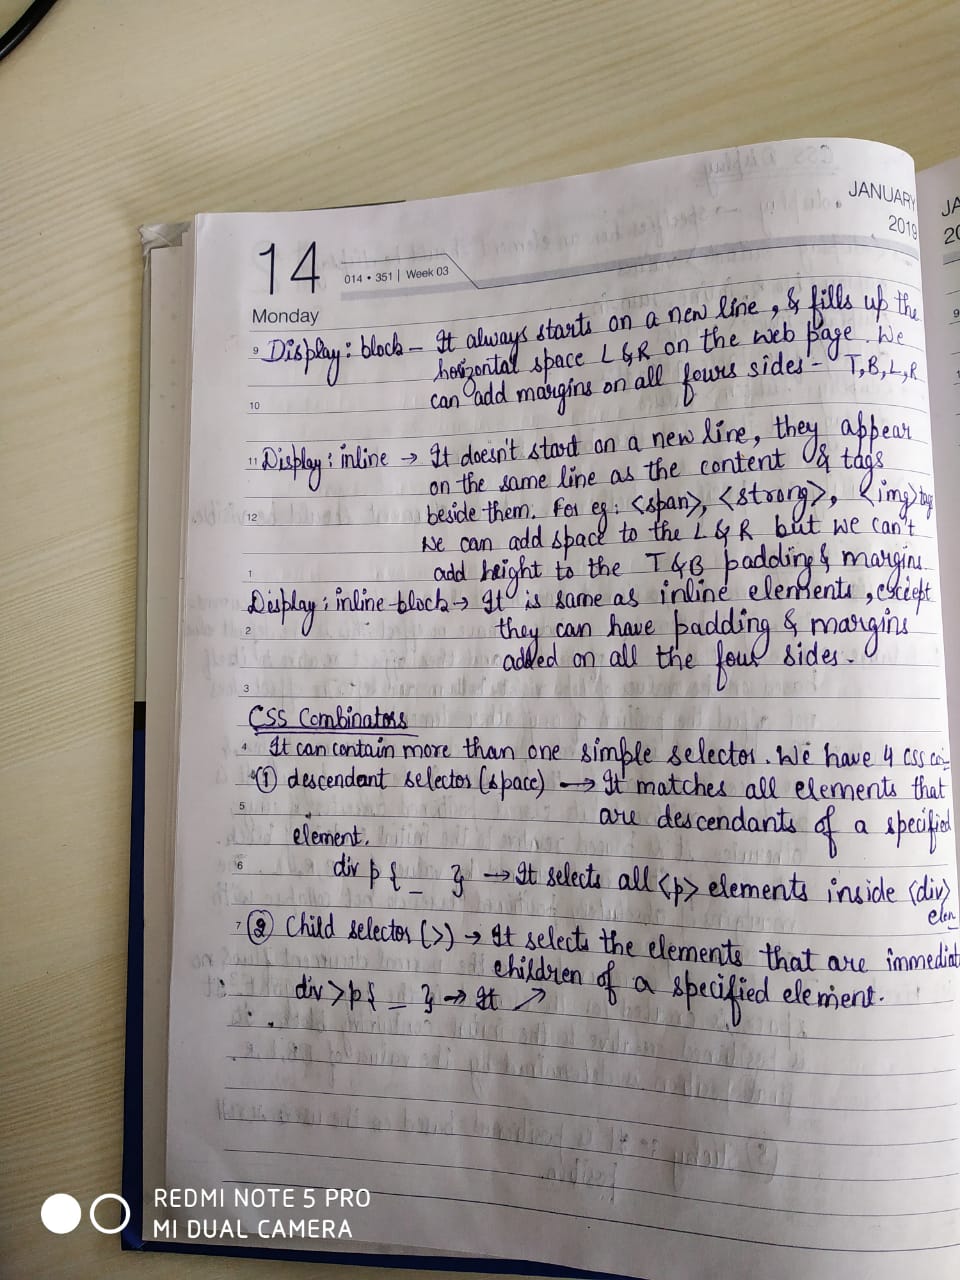 JANUARY
2019
14
014 • 351 | Week 03
Monday
JA
20
9 Display: block – It always starts on a new line, & fills up the
horizontal space L & R on the web page. We
10 can add margins on all fours sides – T, B, L, R
11 Display: inline → It doesn't start on a new line, they appear
on the same line as the content & tags
12 beside them. For eg: <span>, <strong>, <img> tag
We can add space to the L & R but we can't
1 add height to the T & B padding & margins.
Display: inline-block → It is same as inline elements, except
2 they can have padding & margins
added on all the four sides.
3
CSS Combinators
4 It can contain more than one simple selector. We have 4 CSS
① descendant selector (space) → It matches all elements that
5 are descendants of a specified
element.
6 div p { _ } → It selects all <p> elements inside <div>
elen
7 ② Child selector (>) → It selects the elements that are immediat
children of a specified element.
div > p { _ } → It ↗
REDMI NOTE 5 PRO
MI DUAL CAMERA